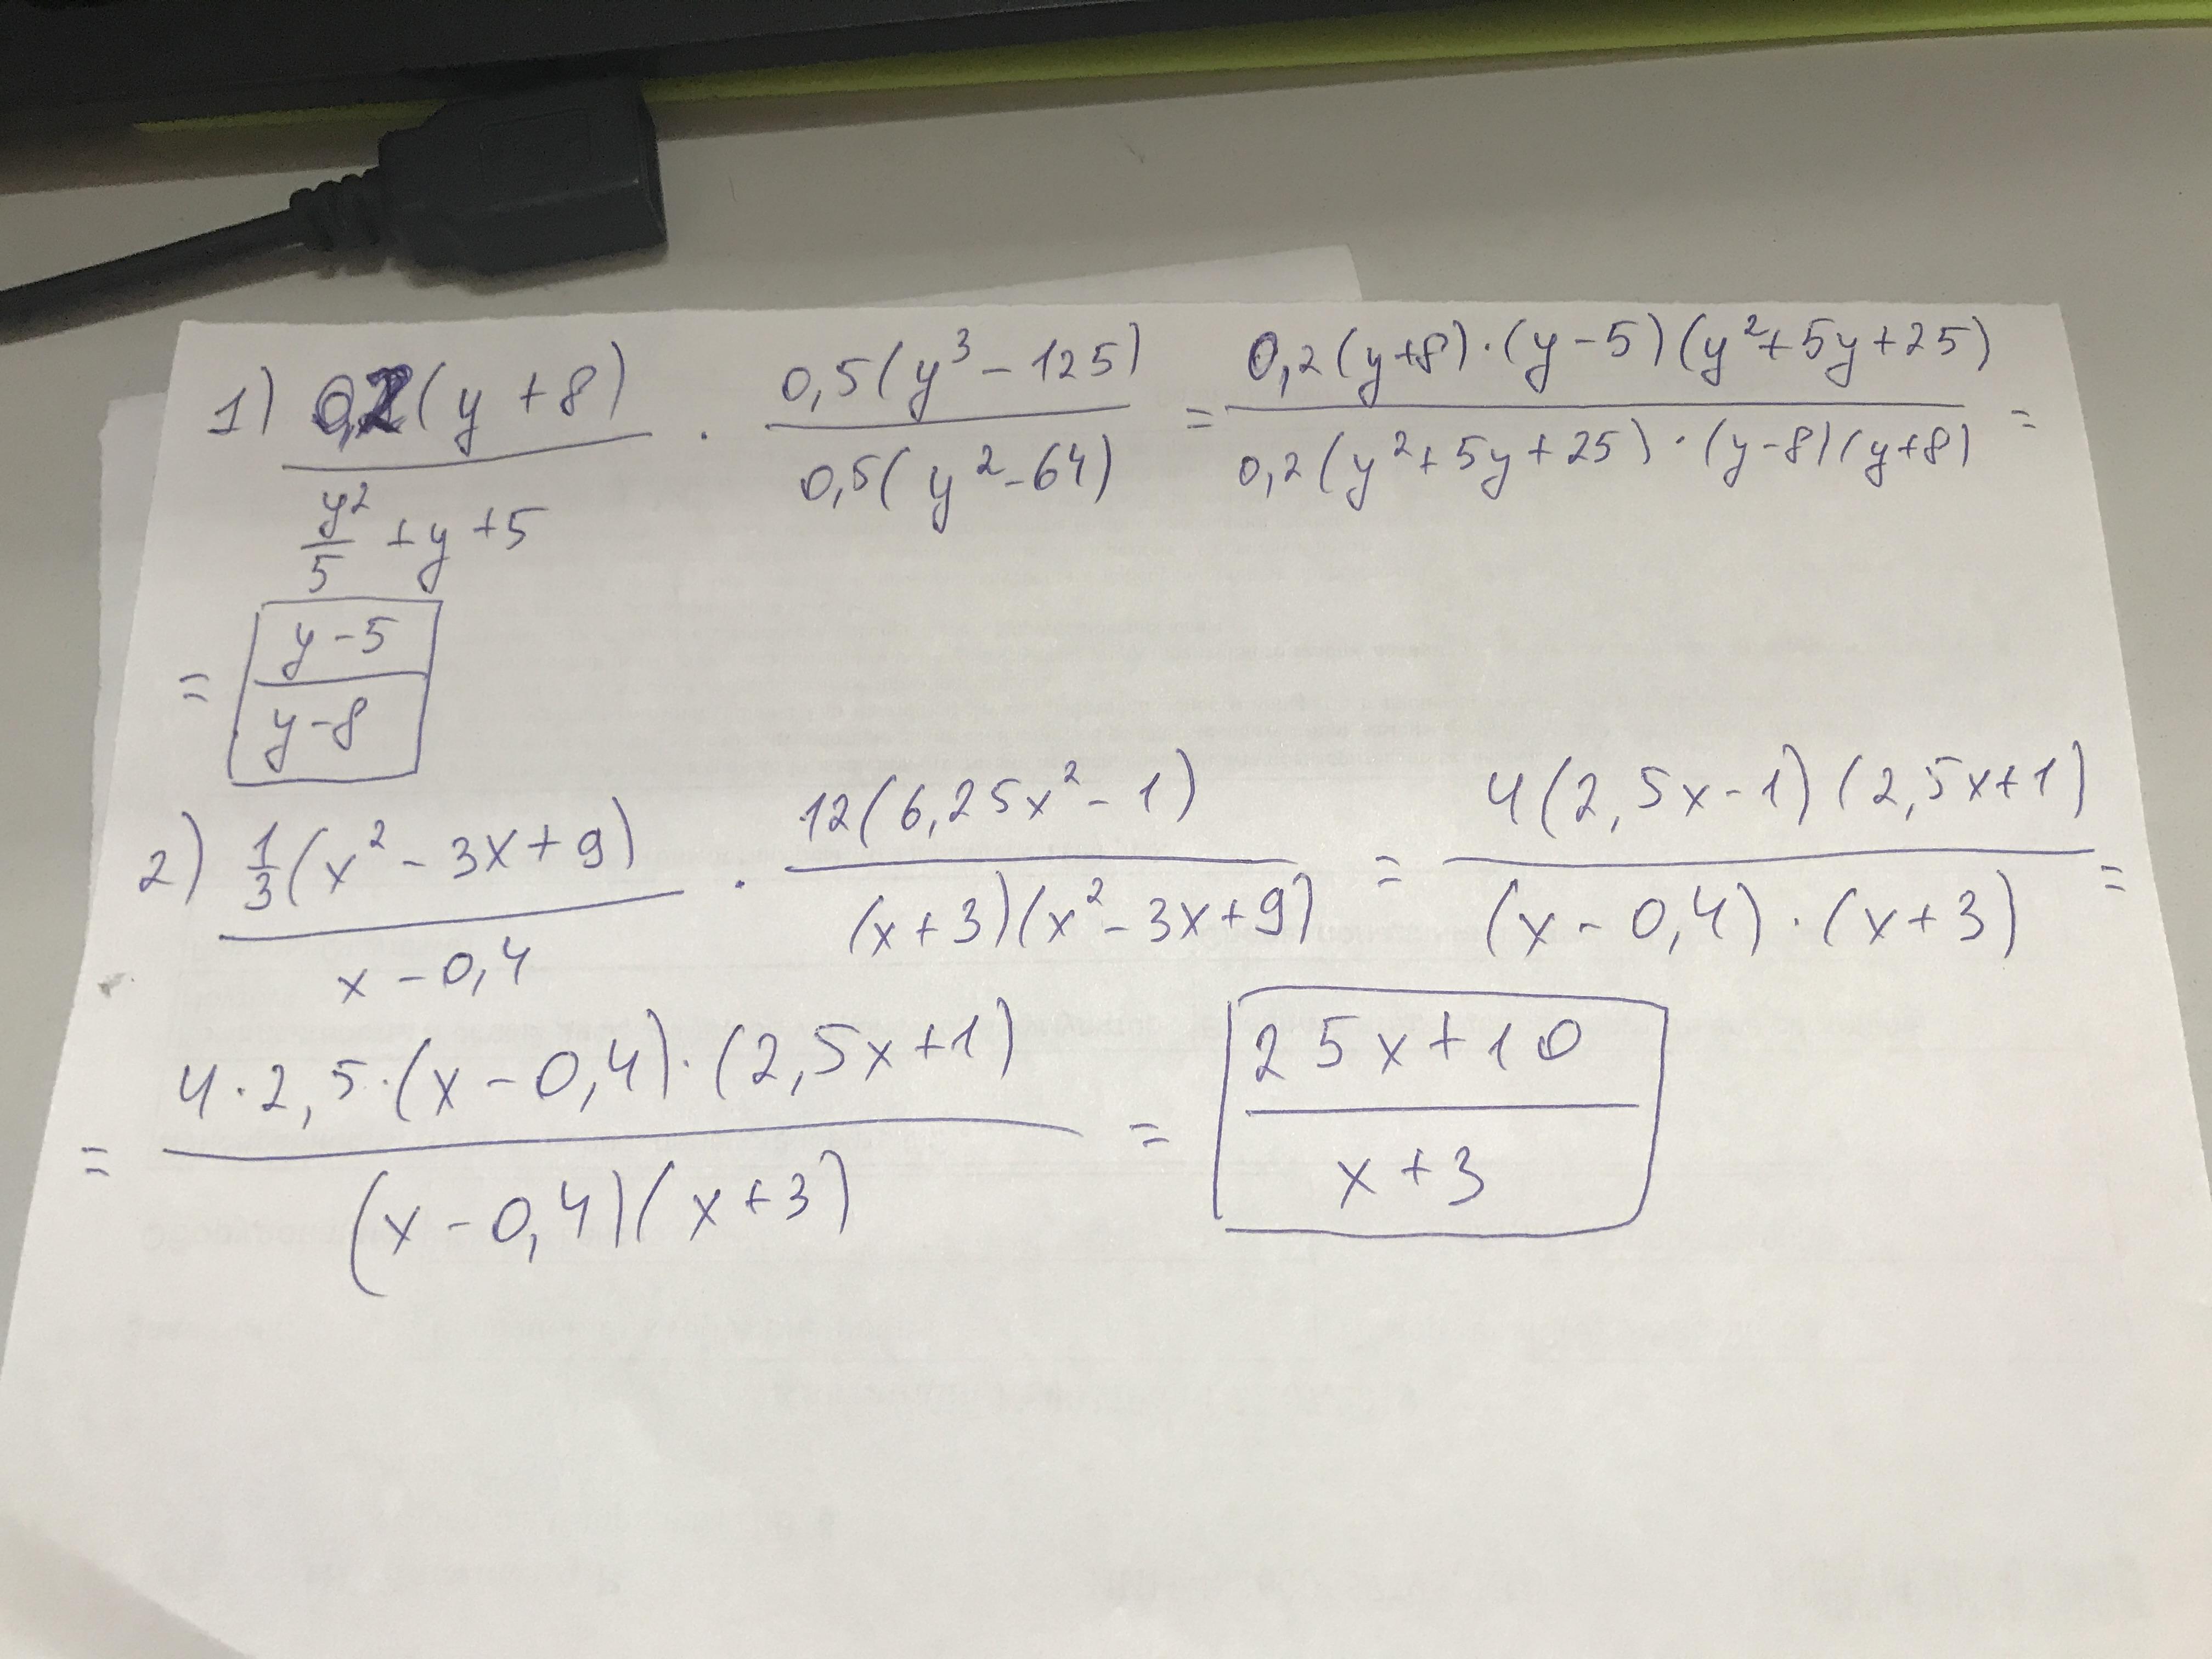 1) 0,2(y+8) / (y²/5 + y + 5) · 0,5(y³ - 125) / 0,5(y² - 64) = 0,2(y+8)·(y-5)(y²+5y+25) / 0,2(y²+5y+25)·(y-8)(y+8) =
= y-5 / y-8
2) 1/3(x² - 3x + 9) / x - 0,4 · 12(6,25x² - 1) / (x+3)(x² - 3x + 9) = 4(2,5x-1)(2,5x+1) / (x - 0,4)·(x+3) =
= 4·2,5·(x - 0,4)·(2,5x+1) / (x - 0,4)(x+3) = 25x+10 / x+3